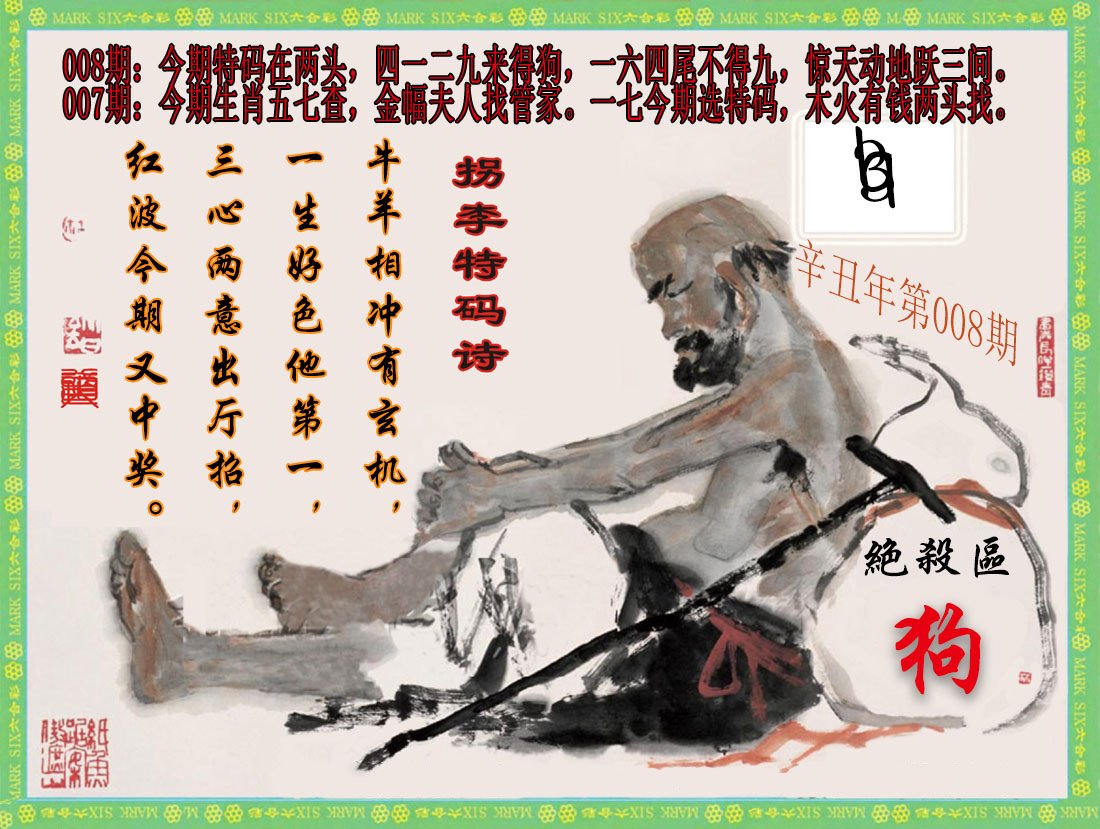 MARK SIX六合彩
008期：今期特码在两头，四一二九来得狗，一六四尾不得九，惊天动地跃三间。
007期：今期生肖五七查，金幅夫人找管家。一七今期选特码，木火有钱两头找。
拐李特码诗
牛羊相冲有玄机，
一生好色他第一，
三心两意出厅招，
红波今期又中奖。
辛丑年第008期
絶殺區
狗